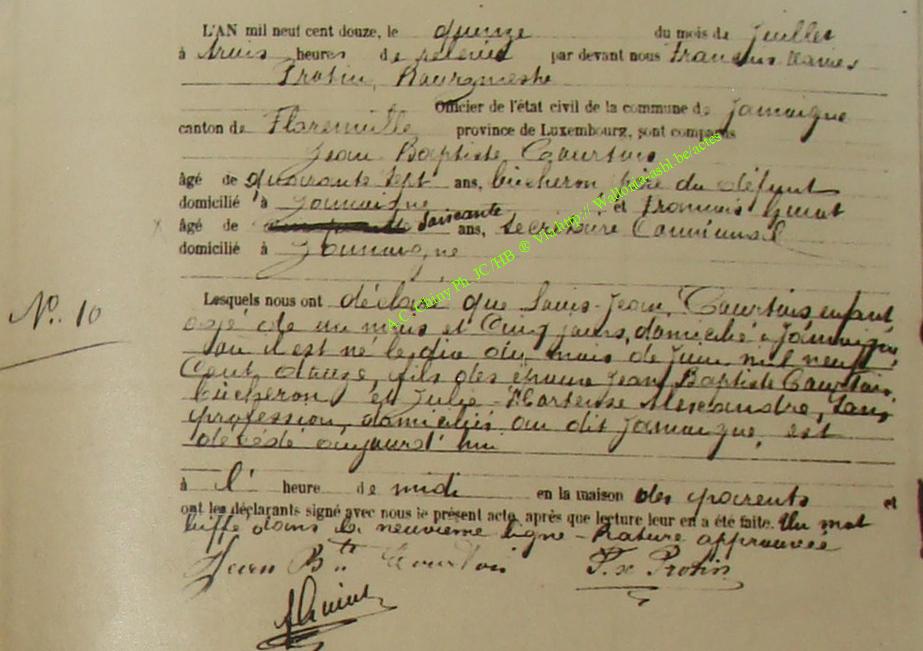 L'AN mil neuf cent douze, le quinze du mois de Juillet
à trois heures de relevée par devant nous François Xavier
Protin, Bourgmestre
Officier de l'état civil de la commune de Jamoigne
canton de Florenville province de Luxembourg, sont comparus
Jean Baptiste Courtois
âgé de quarante sept ans, bûcheron, père du défunt
domicilié à Jamoigne et François
âgé de soixante ans, secrétaire Communal
domicilié à Jamoigne
Lesquels nous ont déclaré que Louis-Jean Courtois, enfant
N°. 10
agé de un mois et cinq jours, domicilié à Jamoigne
où il est né le dix du mois de Juin mil neuf
Cent douze, fils des époux Jean Baptiste Courtois,
bûcheron et Julie-Hortense Alexandre, sans
profession, domiciliés au dit Jamoigne, est
décédé aujourd'hui
à l' heure de midi en la maison des parents et
ont les déclarants signé avec nous le présent acte, après que lecture leur en a été faite. Un mot
biffé dans la neuvième ligne - Rature approuvée
Jean Bte Courtois F. x Protin
A.C. Chiny Ph JC/HB ® Visit http://Wallonia-asbl.be/actes